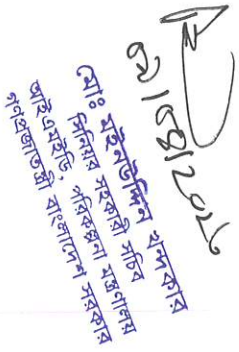 ০৯/০৪/২০২৬
মোঃ মইনউদ্দিন খন্দকার
সিনিয়র সহকারী সচিব
আইএমইডি, পরিকল্পনা মন্ত্রণালয়
গণপ্রজাতন্ত্রী বাংলাদেশ সরকার